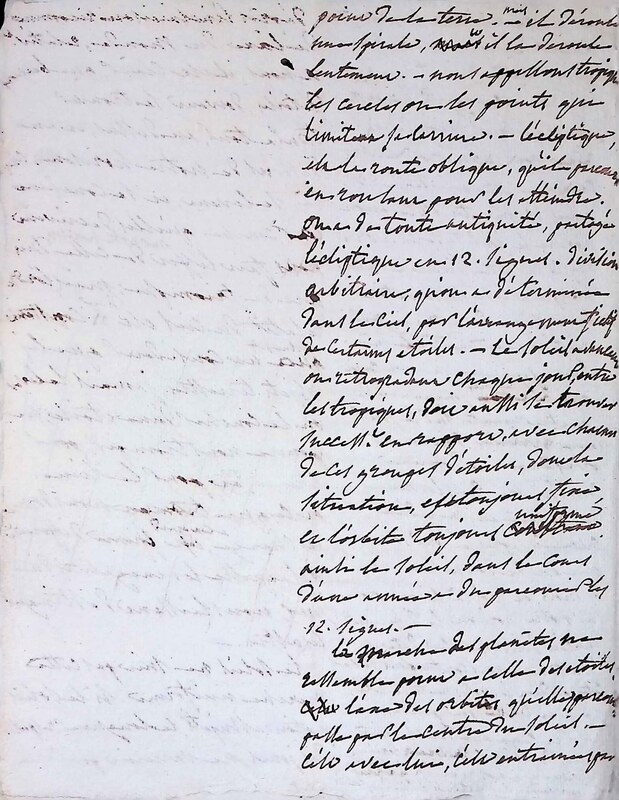 point de la terre. — mais il déroule
une spirale, et il la déroule
lentement. — nous appellons tropiques
les cercles ou les points qui
limitent sa carrière. — l'écliptique,
est la route oblique, qu'il parcourt
en roulant pour les atteindre.
on a de toute antiquité, partagé
l'écliptique en 12. signes. division
arbitraire, qu'on a déterminée
dans le ciel, par l'arrangement fictif
de certaines étoiles. — Le soleil avançant
ou rétrogradant chaque jour, entre
les tropiques, doit aussi se trouver
success.t en rapport, avec chacun
de ces groupes d'étoiles, dont la
situation, est toujours fixe
et l'orbite toujours uniforme
ainsi le soleil, dans le cours
d'une année a du parcourir les
12. signes. —
la marche des planètes ne
ressemble point a celle des étoiles,
l'axe des orbites qu'elles parcourent
passe par le centre du soleil. —
c'est avec lui, c'est entrainées par